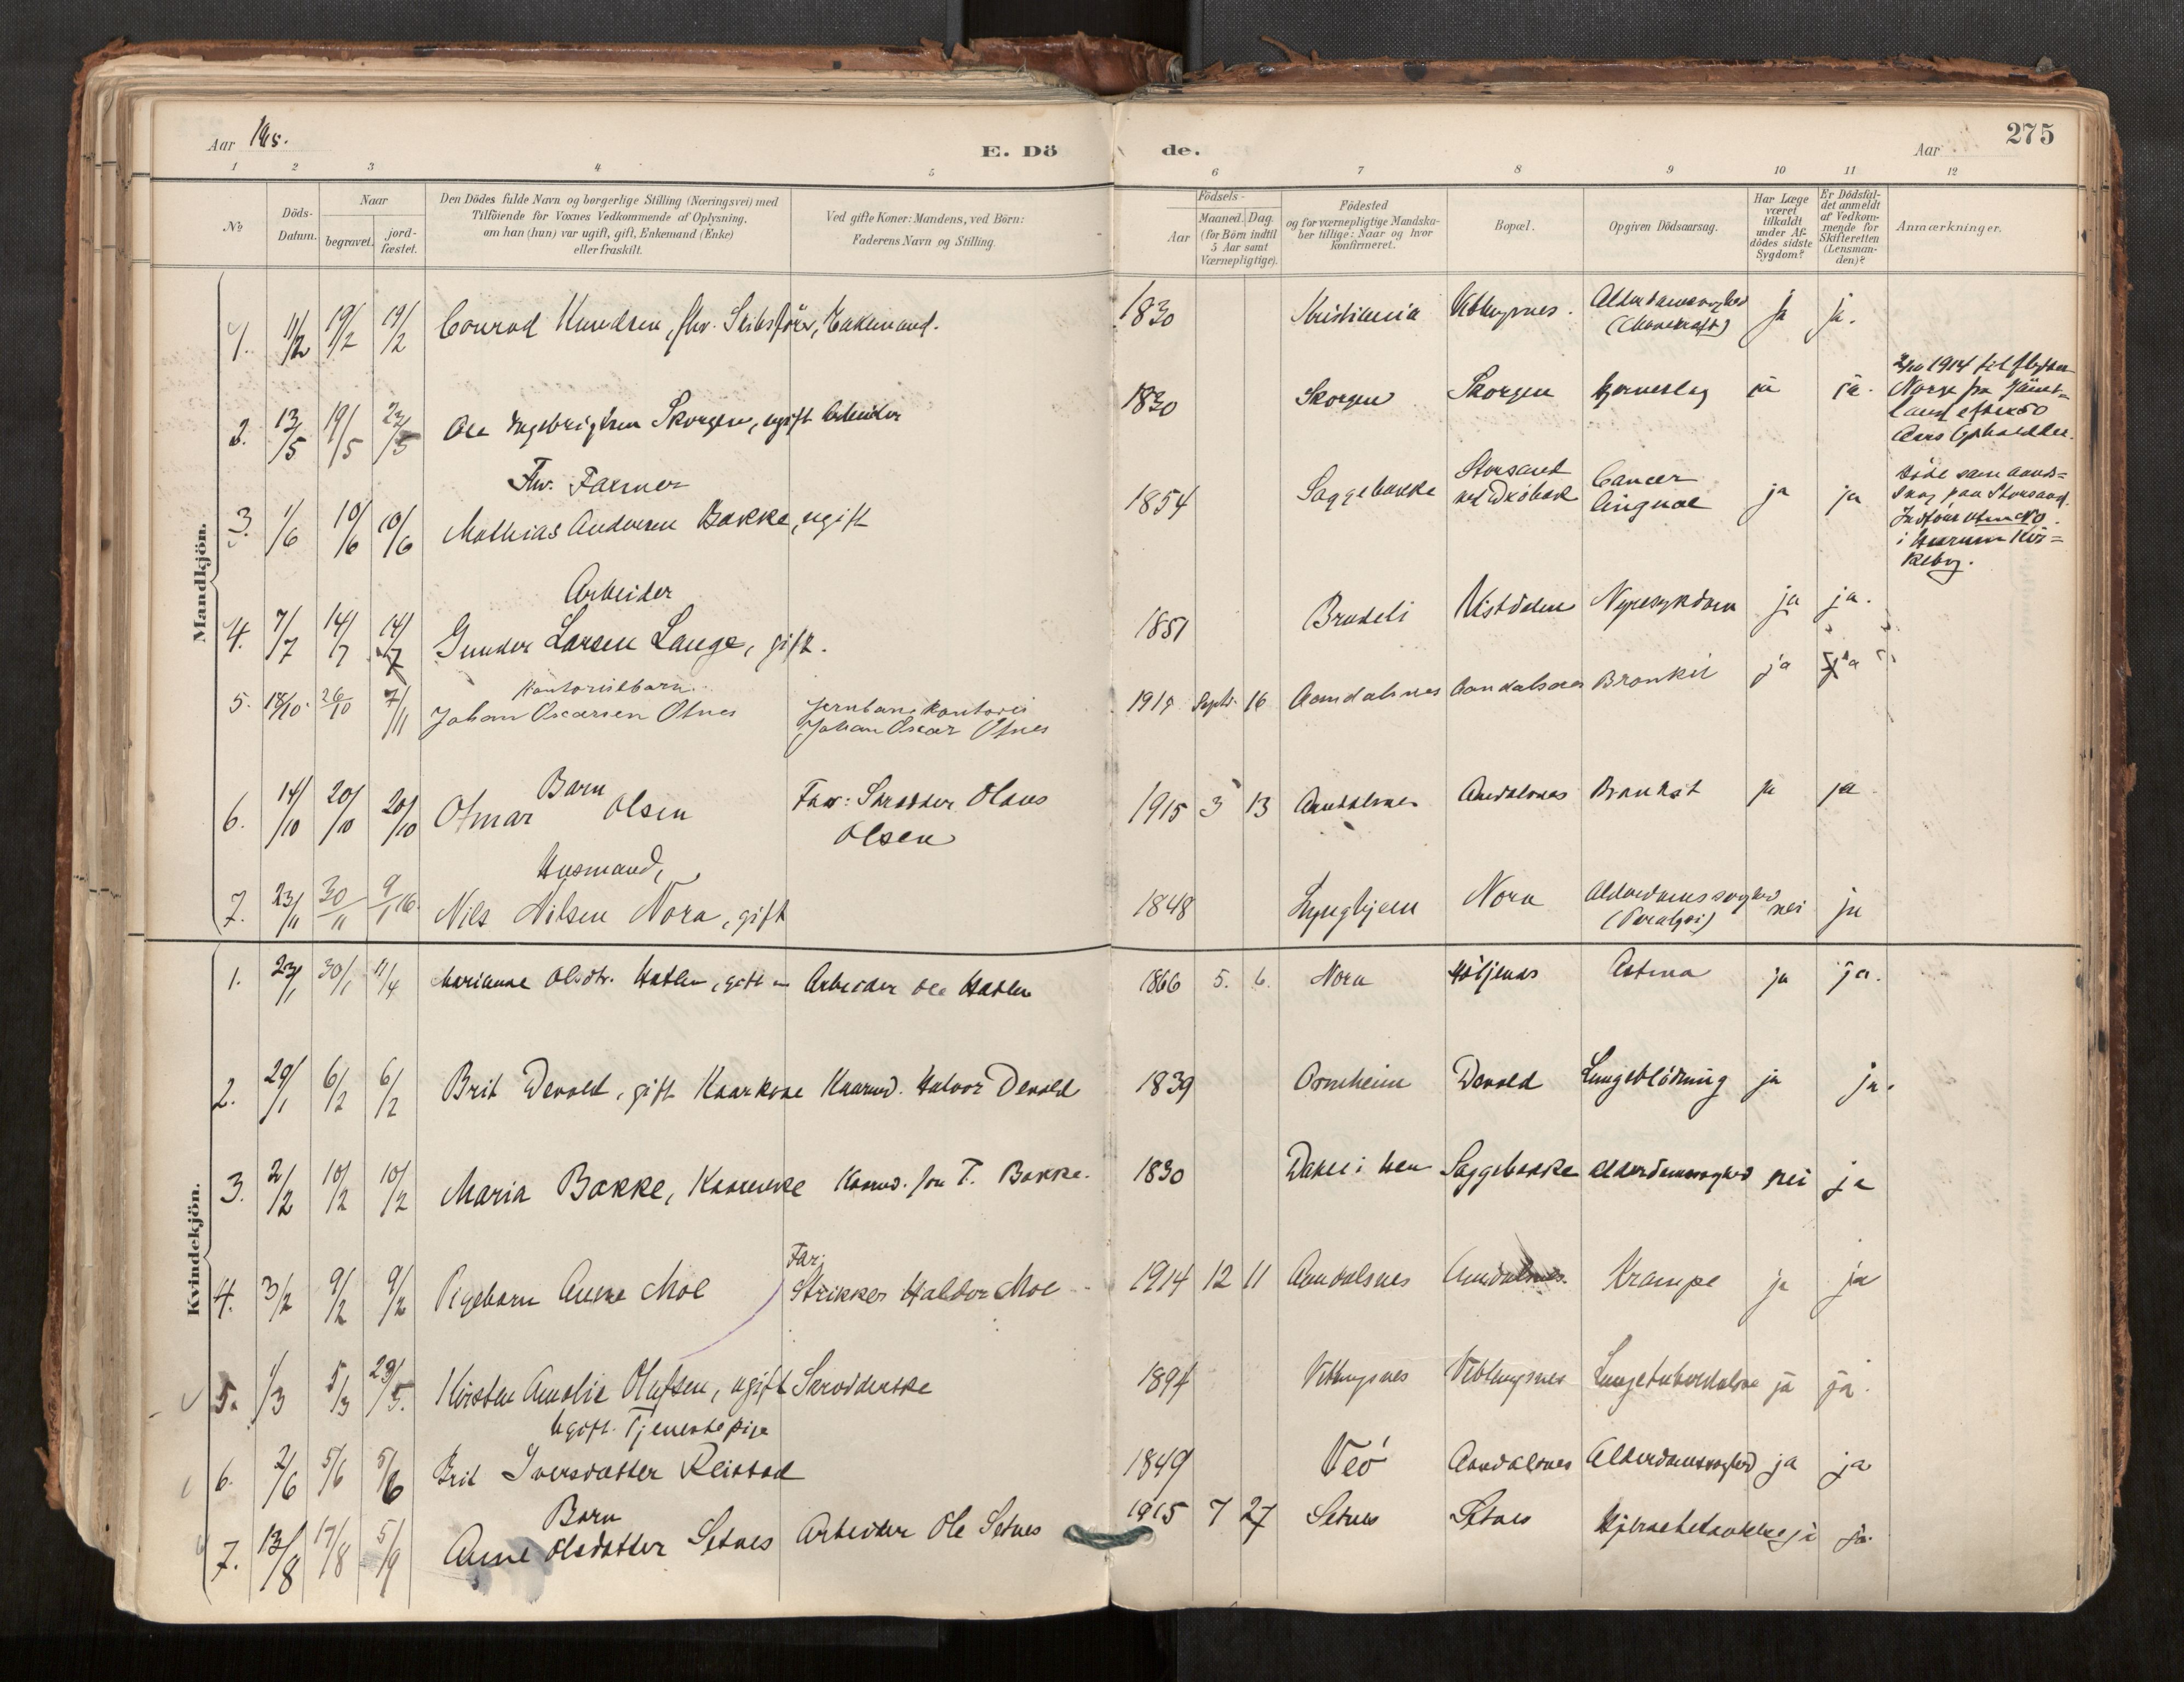 Aar 1915.
E. Döde.
Aar
275
1 2 3 4 5 6 7 8 9 10 11 12
No
Döds-Datum.
Naar
begravet.
jord-fæstet.
Den Dödes fulde Navn og borgerlige Stilling (Næringsvei) med
Tilföiende for Voxnes Vedkommende af Oplysning,
om han (hun) var ugift, gift, Enkemand (Enke)
eller fraskilt.
Ved gifte Koner: Mandens, ved Börn:
Faderens Navn og Stilling.
Födsels-
Aar
Maaned. Dag.
(for Börn indtil
5 Aar samt
Værnepligtige).
Födested
og for værnepligtige Mandska-
ber tillige: Naar og hvor
konfirmeret.
Bopæl.
Opgiven Dödsaarsag.
Har Læge
været
tilkaldt
under Af-
dödes sidste
Sygdom?
Er Dödsfal-
det anmeldt
af Vedkom-
mende for
Skifteretten
(Lensman-
den)?
Anmærkninger.
Mandkjön.
1. 11/2 19/2 19/2 Conrad Knudsen, fhv. Skibsförer, Enkemand. 1830 Kristiania Veblungsnes. Alderdomssvaghed ja ja.
2. 13/5 19/5 23/5 Ole Ingebrigtsen Skorgen, ugift Arbeider 1830 Skorgen Skorgen Hjerneslag ja ja.
1914
Norge fra Jämt-
land efter 50
Aars Ophold der.
Fhv. Farmer
3. 1/6 10/6 10/6 Mathias Andersen Bakke, ugift 1854 Saggebakke Storsand ved Dröbak Cancer linguae ja ja
Döde
paa Storsand.
i Hurum Kir-
kebog.
Arbeider
4. 7/7 14/7 14/7 Gunder Larsen Lange, gift. 1851 Brudeli Vistdalen Nyresygdom ja ja.
Kontoristbarn
5. 18/10 26/10 7/11 Johan Oscarsen Otnes Jernbanekontorist
Johan Oscar Otnes 1914 Septr. 16 Aandalsnes Aandalsnes Bronkit ja ja
Barn
6. 14/10 20/10 20/10 Otmar Olsen Far: Skrædder Olaus
Olsen 1915 3 13 Aandalsnes Andalsnes Bronkit ja ja
Husmand,
7. 23/11 30/11 9/1 16. Nils Nilsen Nora, gift 1848 Lyngheim Nora Alderdomssvaghed
(Paralysi) nei ja
Kvindekjön.
1. 23/1 30/1 11/4 Marianne Olsdtr. Hatlen, gift m Arbeider Ole Hatlen 1866 5. 6. Nora Höljenes Astma ja ja.
2. 29/1 6/2 6/2 Brit Devold, gift Kaarkone Kaarmd. Halvor Devold 1839 Ormheim Devold Lungeblödning ja ja.
3. 2/2 10/2 10/2 Maria Bakke, Kaarenke Kaarmd. Jon T. Bakke. 1830 Dahle i Hen Saggebakke Alderdomssvaghed nei ja
Far:
4. 3/2 9/2 9/2 Pigebarn Anna Moe Strikker Haldor Moe 1914 12 11 Aandalsnes Aandalsnes. Krampe ja ja
5. 1/3 5/3 29/5. Kirsten Amalie Olufsen, ugift Skrædderske 1894 Veblungsnes Veblungsnes Lungetuberkulose ja ja.
Ugift. Tjenestepige
6. 2/6 5/6 5/6 Brit Iversdatter Reistad 1849 Veö Aandalsnes Alderdomssvaghed ja ja
Barn
7. 13/8 17/8 5/9 Anne Olsdatter Setnes Arbeider Ole Setnes 1915 7 27 Setnes Setnes ja ja.